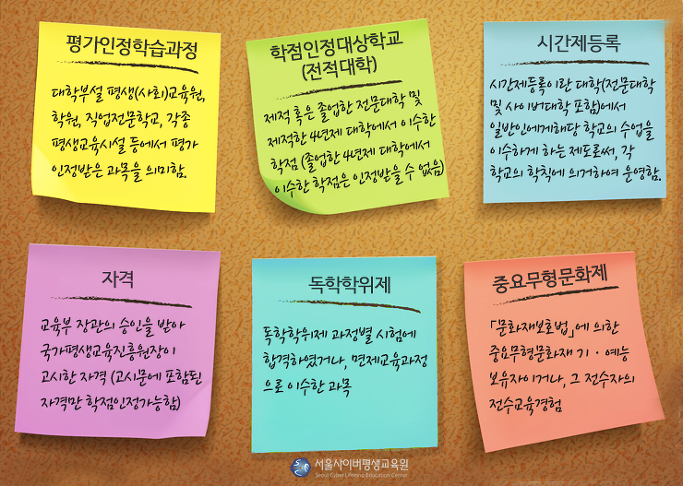 평가인정학습과정
대학부설 평생(사회)교육원,
학원, 직업전문학교, 각종
평생교육시설 등에서 평가
인정받은 과목을 의미함.
학점인정대상학교
(전적대학)
제적 혹은 졸업한 전문대학 및
제적한 4년제 대학에서 이수한
학점 (졸업한 4년제 대학에서
이수한 학점은 인정받을 수 없음)
시간제등록
시간제등록이란 대학(전문대학
및 사이버대학 포함)에서
일반인에게해당 학교의 수업을
이수하게 하는 제도로써, 각
학교의 학칙에 의거하여 운영함.
자격
교육부 장관의 승인을 받아
국가평생교육진흥원장이
고시한 자격 (고시문에 포함된
자격만 학점인정가능함)
독학학위제
독학학위제 과정별 시험에
합격하였거나, 면제교육과정
으로 이수한 과목
중요무형문화제
「문화재보호법」에 의한
중요무형문화재 기·예능
보유자이거나, 그 전수자의
전수교육경험
서울사이버평생교육원
Seoul Cyber Lifelong Education Center